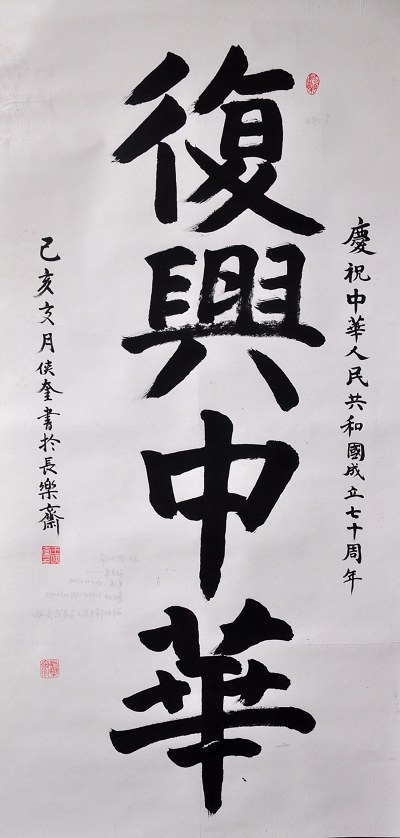 慶祝中華人民共和國成立七十周年
復興中華
己亥月侯奎書於長樂齋